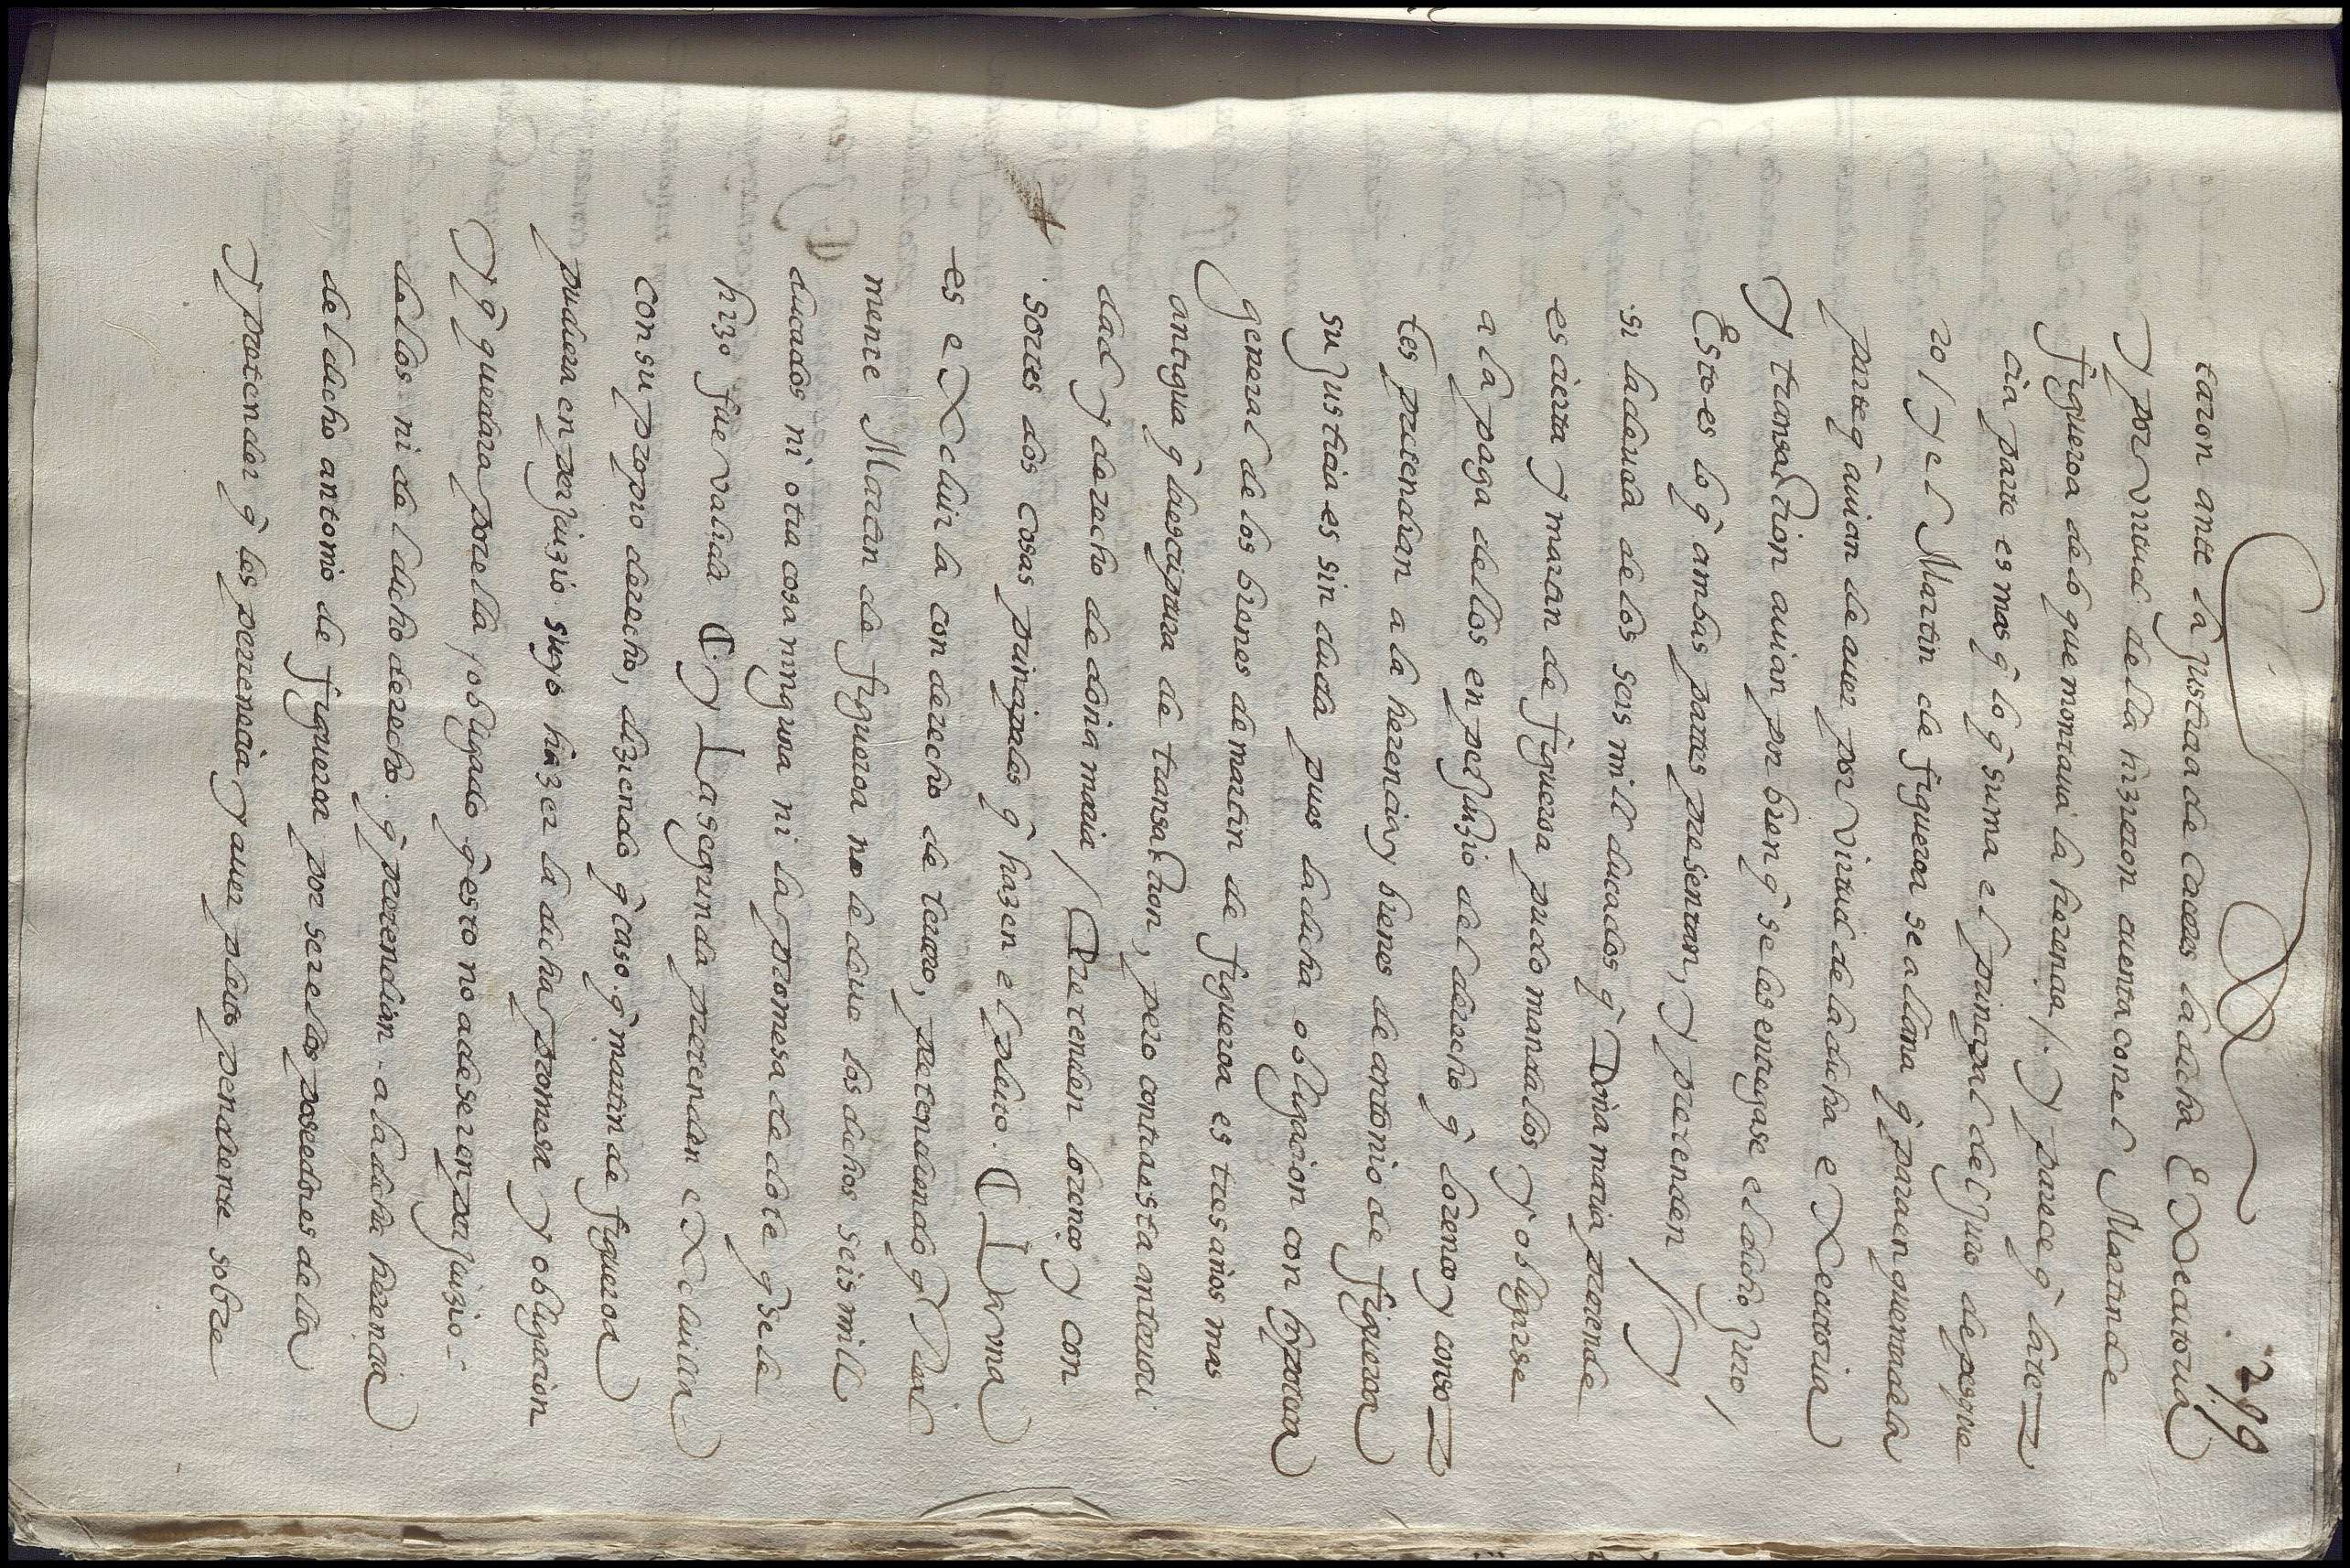 299
taron ante la justicia de caceres la dicha Executoria
y por virtud della hizieron cuenta con el Martin de
figueroa de lo que montaua la herencia /. y parece q̃ la ter-
cia parte es mas q̃ lo q̃ suma el principal del juro de pesque
ro / y el Martin de figueroa se allana q̃ para en quenta de la
parte q̃ auian de auer por virtud de la dicha executoria
y transaction auian por bien q̃ se les entregase el dicho juro,
Esto es lo q̃ ambas partes presentan, y pretenden /
si la deuda de los seis mill ducados q̃ Doña maria pretende
es cierta y martin de figueroa pudo mandalos y obligarse
a la paga dellos en perjuizio del derecho q̃ lorenço y conso-
tes pretendian a la herencia y bienes de antonio de figueroa
su justicia es sin duda pues la dicha obligacion con hypoteca
general de los bienes de martin de figueroa es tres años mas
antigua q̃ la escriptura de transaction, pero contra esta anteriori
dad y derecho de doña maria / Pretenden lorenço y con
sortes dos cosas principales q̃ hazen el pleito. La vna
es excluirla con derecho de tercero, pretendiendo q̃ Real
mente Martin de figueroa no le deue los dichos seis mill
ducados ni otra cosa ninguna ni la promesa de dote q̃ se le
hizo fue valida y La segunda pretenden excluilla
con su propio derecho, diziendo q̃ caso q̃ martin de figueroa
pudiera en perjuizio suyo hazer la dicha promesa y obligacion
y q̃ quedara por ella obligado q̃ esto no a de ser en perjuizio
dellos ni del dicho derecho q̃ pretendian a la dicha herencia
del dicho antonio de figueroa por ser ellos poseedores de la
y pretender q̃ les pertenecia y auer pleito pendiente sobre